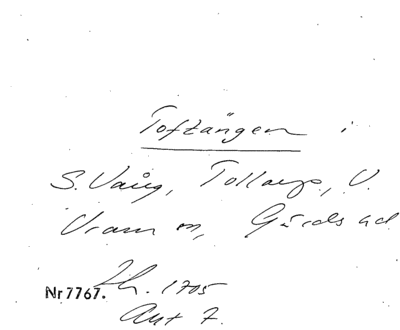 Toftängen i
S. Vång, Tollarps, V.
Vram m, Gärds hd
Nr 7767. Lh. 1705
Ant 7.